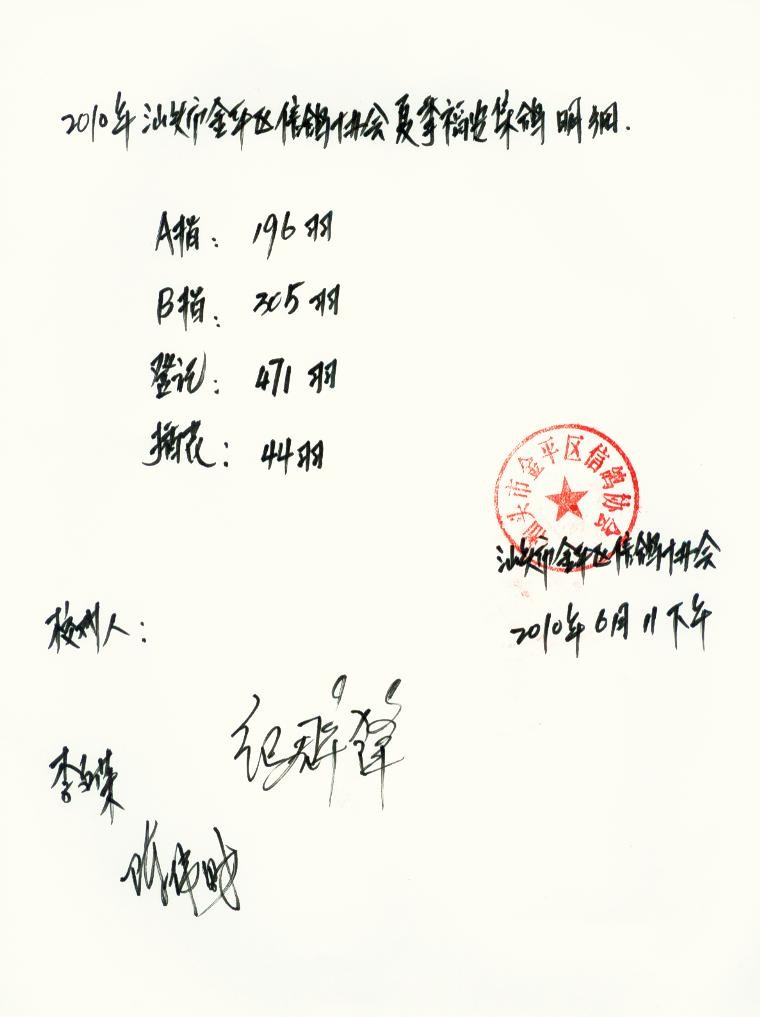 2010年汕头市金平区信鸽协会夏季福安集鸽明细.
A指: 196羽
B指: 305羽
登记: 471羽
插花: 44羽
汕头市金平区信鸽协会
汕头市金平区信鸽协会
2010年6月11下午
校对人: